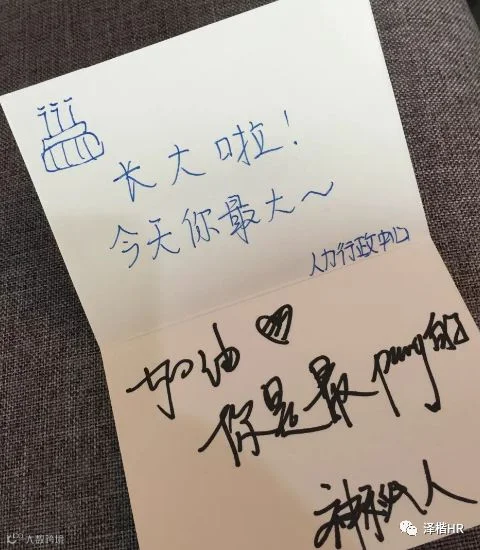 长大啦！
今天你最大～
人力行政中心
加油
你是最pang的
神秘人
泽楷HR
大数跨境